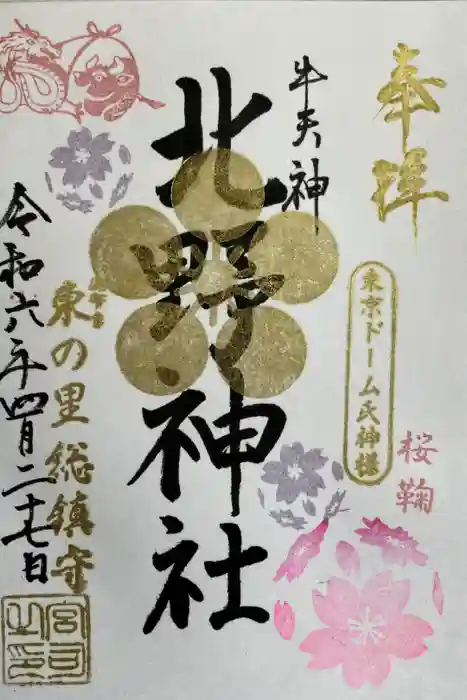 奉拝
牛天神
北野神社
東京ドーム氏神様
桜鞠
東の里総鎮守
令和六年四月二十七日
宮司之印